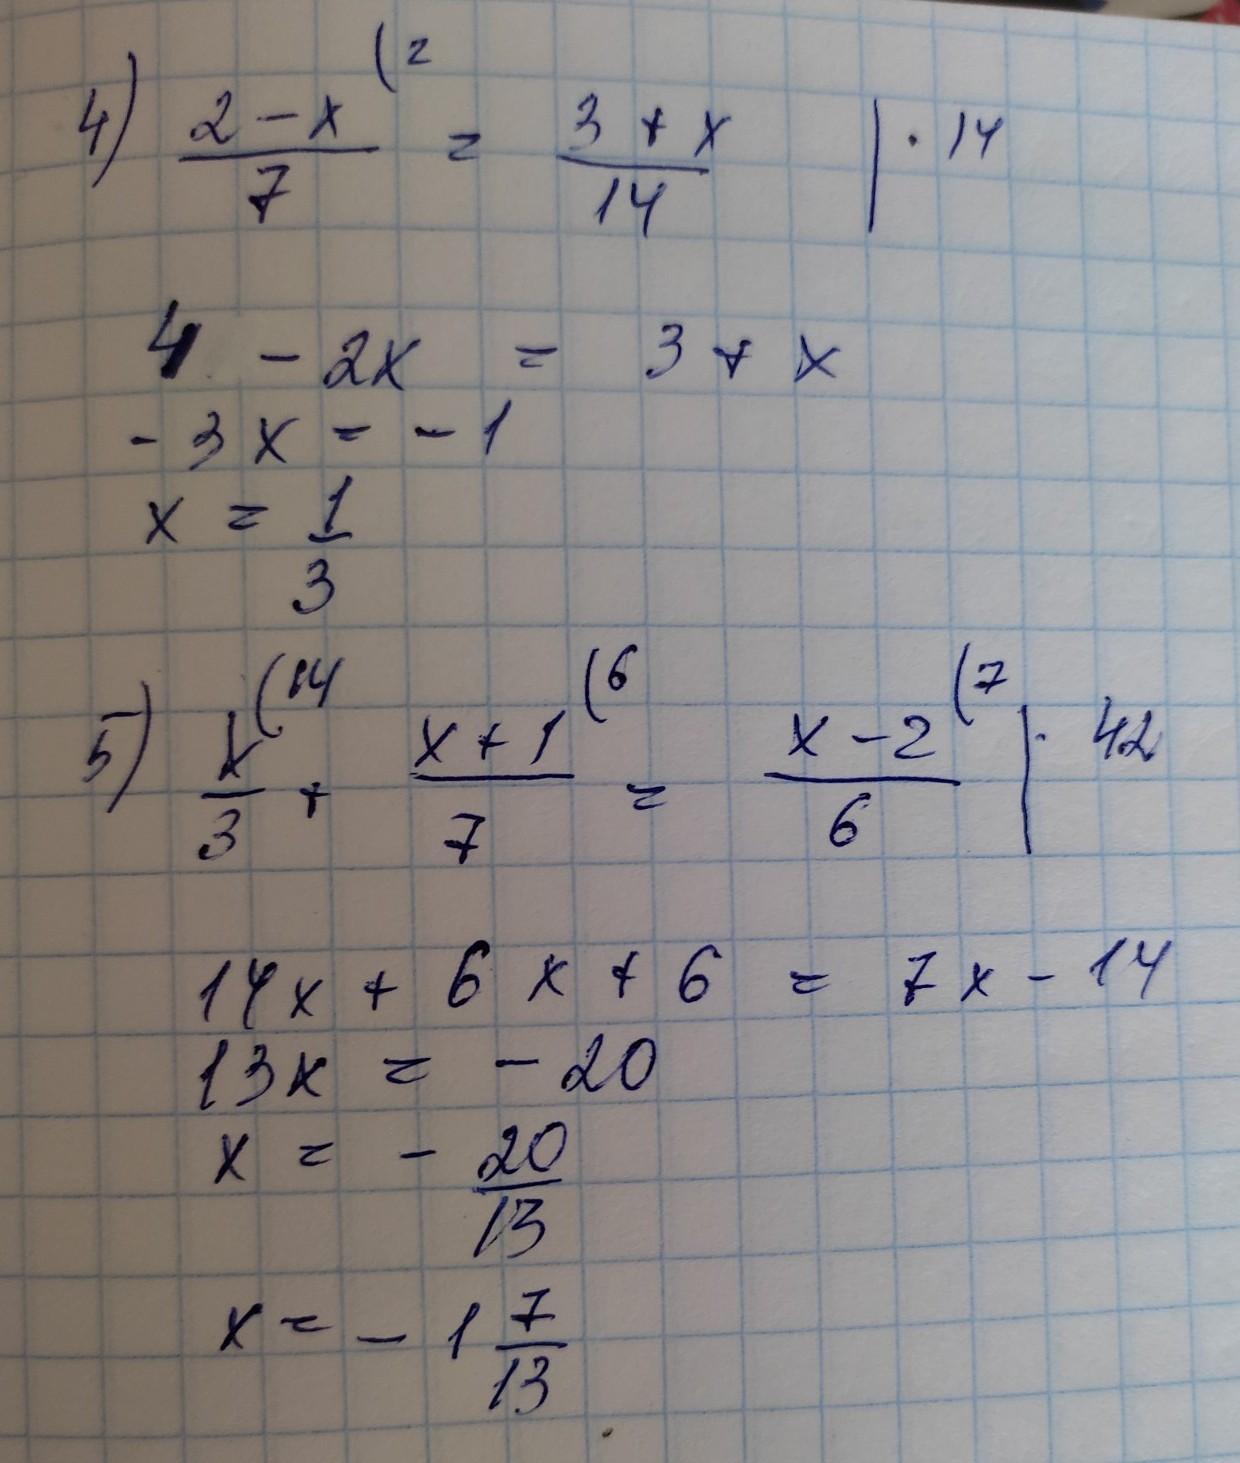 4) (2-x)/7 (2 = (3+x)/14 | · 14
4 - 2x = 3 + x
-3x = -1
x = 1/3
5) x/3 (14 + (x+1)/7 (6 = (x-2)/6 (7 | · 42
14x + 6x + 6 = 7x - 14
13x = -20
x = - 20/13
x = - 1 7/13